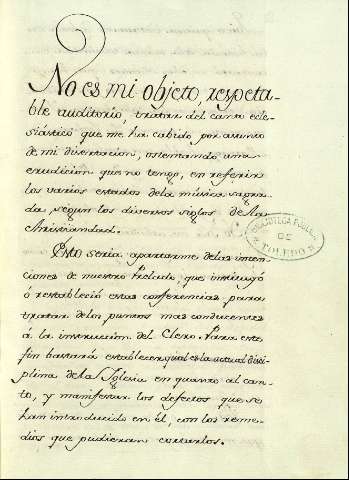 No es mi objeto, respeta-
ble auditorio, tratar del canto ecle-
siástico que me ha cabido por asunto
de mi disertacion, ostentando una
erudicion que no tengo, en referir
los varios estados dela música sagra-
da, segun los diversos siglos de la
christiandad.
Esto seria apartarme delas inten-
ciones de nuestro Prelado, que instituyó
ó restableció estas conferencias, para
tratar delos puntos mas conducentes
á la instruccion del Clero. Para este
fin bastará establecer qual es la actual disci-
plina de la Yglesia en quanto al can-
to, y manifestar los defectos que se
han introducido en él, con los reme-
dios que pudieran cortarlos.
BIBLIOTECA PUBLICA
DE
TOLEDO